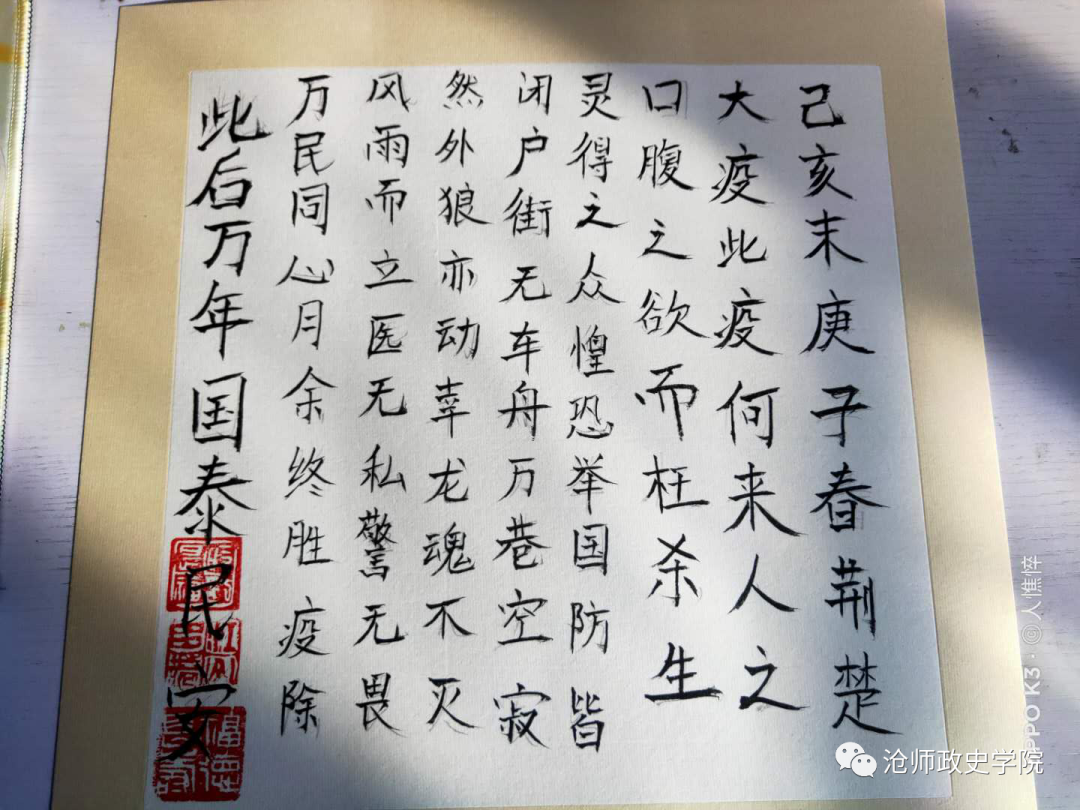 己亥末庚子春荆楚
大疫此疫何来人之
口腹之欲而枉杀生
灵得之众惶恐举国防皆
闭户街无车舟万巷空寂
然外狼亦动幸龙魂不灭
风雨而立医无私警无畏
万民同心月余终胜疫除
此后万年国泰民安
福德
OPPO K3 · @人憔悴
沧师政史学院